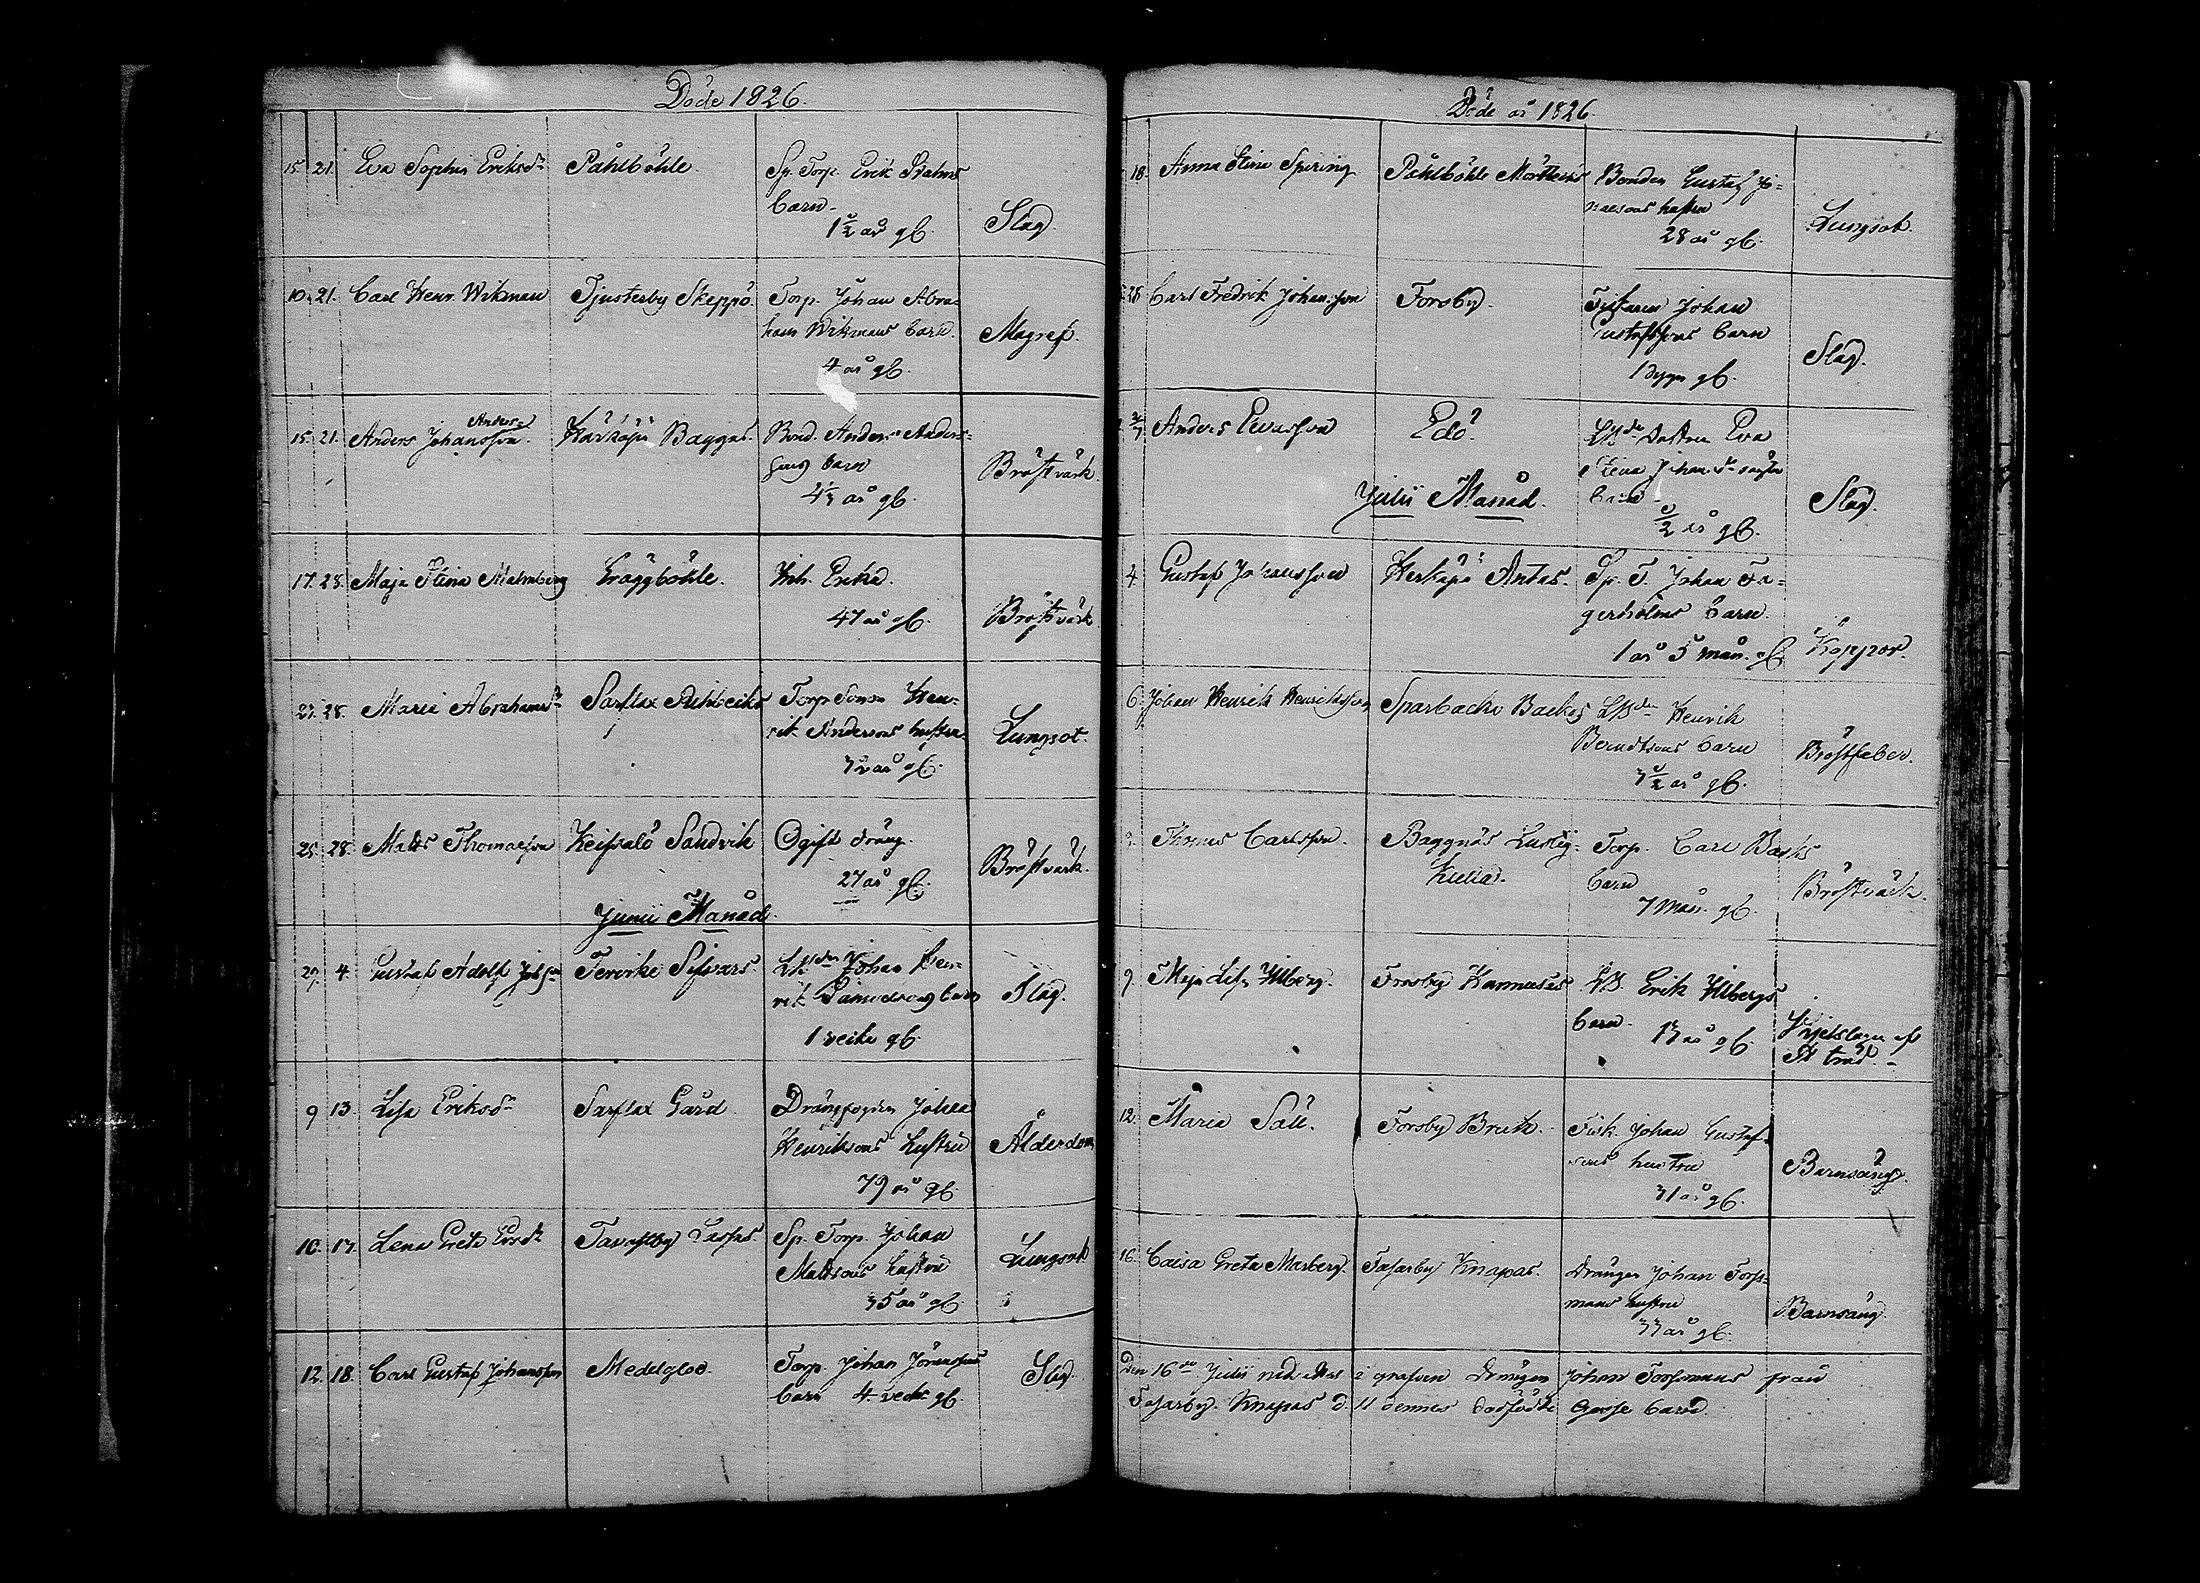 Döde 1826.
15. 21. Eva Sophia Eriksdr Påhlböhle. Sp. Torp. Erik
barn
1 1/2 år gl. Slag.
10. 21. Carl Henr. Wikman Tjusterby Skeppö. Torp. Johan Abra-
ham Wikmans barn.
4 år gl. Magref.
Anders-
15. 21. Anders Johansson. Härkäpä Baggas. Bond. Anders Anders-
sons barn
år gl. Bröstvärk.
17. 28. Maja Stina Malmberg Gräggböhle. Inh. Enka.
47 år gl. Bröstvärk
28. Maria Abrahamsdr Sarflax Torp. Sonen Hen-
rik Andersons hustru
32 år gl. Lungsot.
25. 28. Matts Thomasson Keipsalö Sandvik Ogift dräng.
27 år gl. Bröstvärk.
Junii Månad.
29. 4. Gustaf Adolf Tervike Sigvars. Johan Hen-
rik barn
1 vecka gl. Slag.
9 13. Lisa Eriksdr Sarflax Gård. Drängfogden Johan
Henriksons hustru
79 år gl. Ålderdom
10. 17. Lena Greta Tavastby Sp. Torp. Johan
Mattsons hustru
35 år gl. Lungsot
12. 18. Carl Gustaf Johansson Medelglod. Torp. Johan
barn 4 veckr gl. Slag
Döde år 1826.
18. Anna Stina Spiring Påhlböhle Mårttens Bonden Gustaf Jo-
hansons hustru
28 år gl. Lungsot.
28 Carl Fredrik Johansson Forsby. Fiskaren Johan
Gustafssons barn
1 dygn gl. Slag.
Anders Evasson Edö. Eva
Stina Johansdr oägta
barn
1/2 år gl. Slag.
Julii Månad.
4 Gustaf Johansson Herkäpä Antas. Sp. T. Johan Fa-
gerholms barn.
1 år 5 mån. gl. Koppor.
6. Johan Henrik Henriksson Sparbacka Backas Henrik
Berndtsons barn
3 1/2 år gl. Bröstfeber.
Thomas Carlsson. Baggnäs Lustig- Torp. Carl Basks
kulla. barn
7 mån. gl. Bröstvärk.
9. Maja Lisa Ylberg. Forsby Kannusas Erik Ylbergs
barn. 13 år gl. Ihjelslagen af
Et träd.
12. Maria Sali. Forsby Bruk. Fisk. Johan Gustaf-
sons hustru
31 år gl. Barnsäng.
16. Caisa Greta Marberg. Fasarby Knapas. Drängen Johan Fors-
mans hustru
33 år gl. Barnsäng.
Den 16de Julii i grafven Drängen Johan Forsmans frau
Fasarby Knapas d. 11 dennes dödfödde Gosse barn.